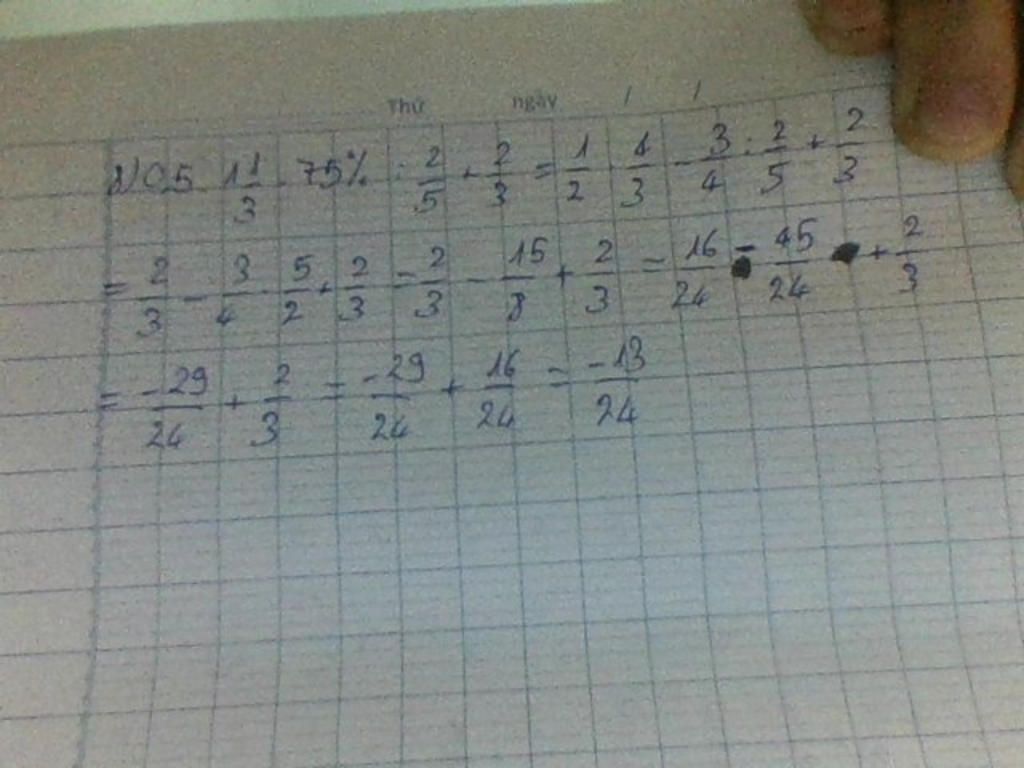 Thứ ngày / /
d) 0,5 1 1/3 - 75% : 2/5 + 2/3 = 1/2 · 4/3 - 3/4 : 2/5 + 2/3
= 2/3 - 3/4 · 5/2 + 2/3 = 2/3 - 15/8 + 2/3 = 16/24 - 45/24 + 2/3
= -29/24 + 2/3 = -29/24 + 16/24 = -13/24